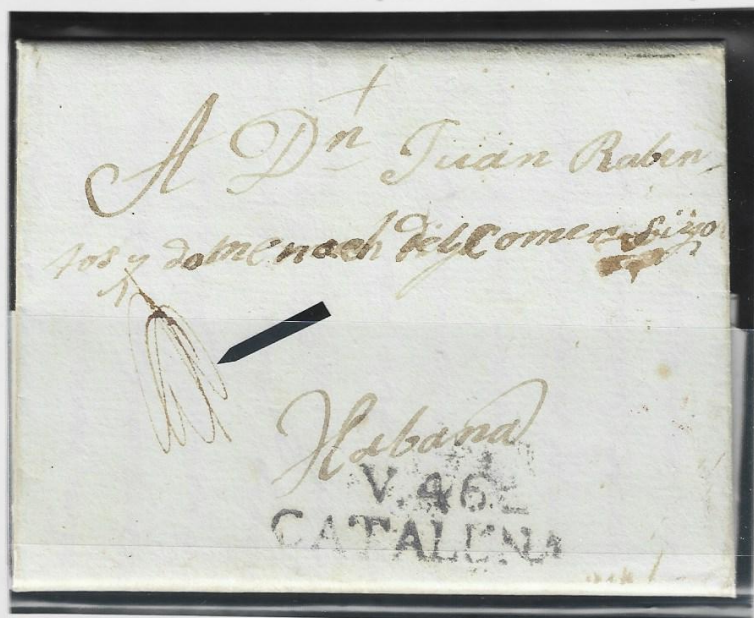 A Dn Juan Raben
tos y domenech del Comersijo
Habana
V.46.
CATALUNA